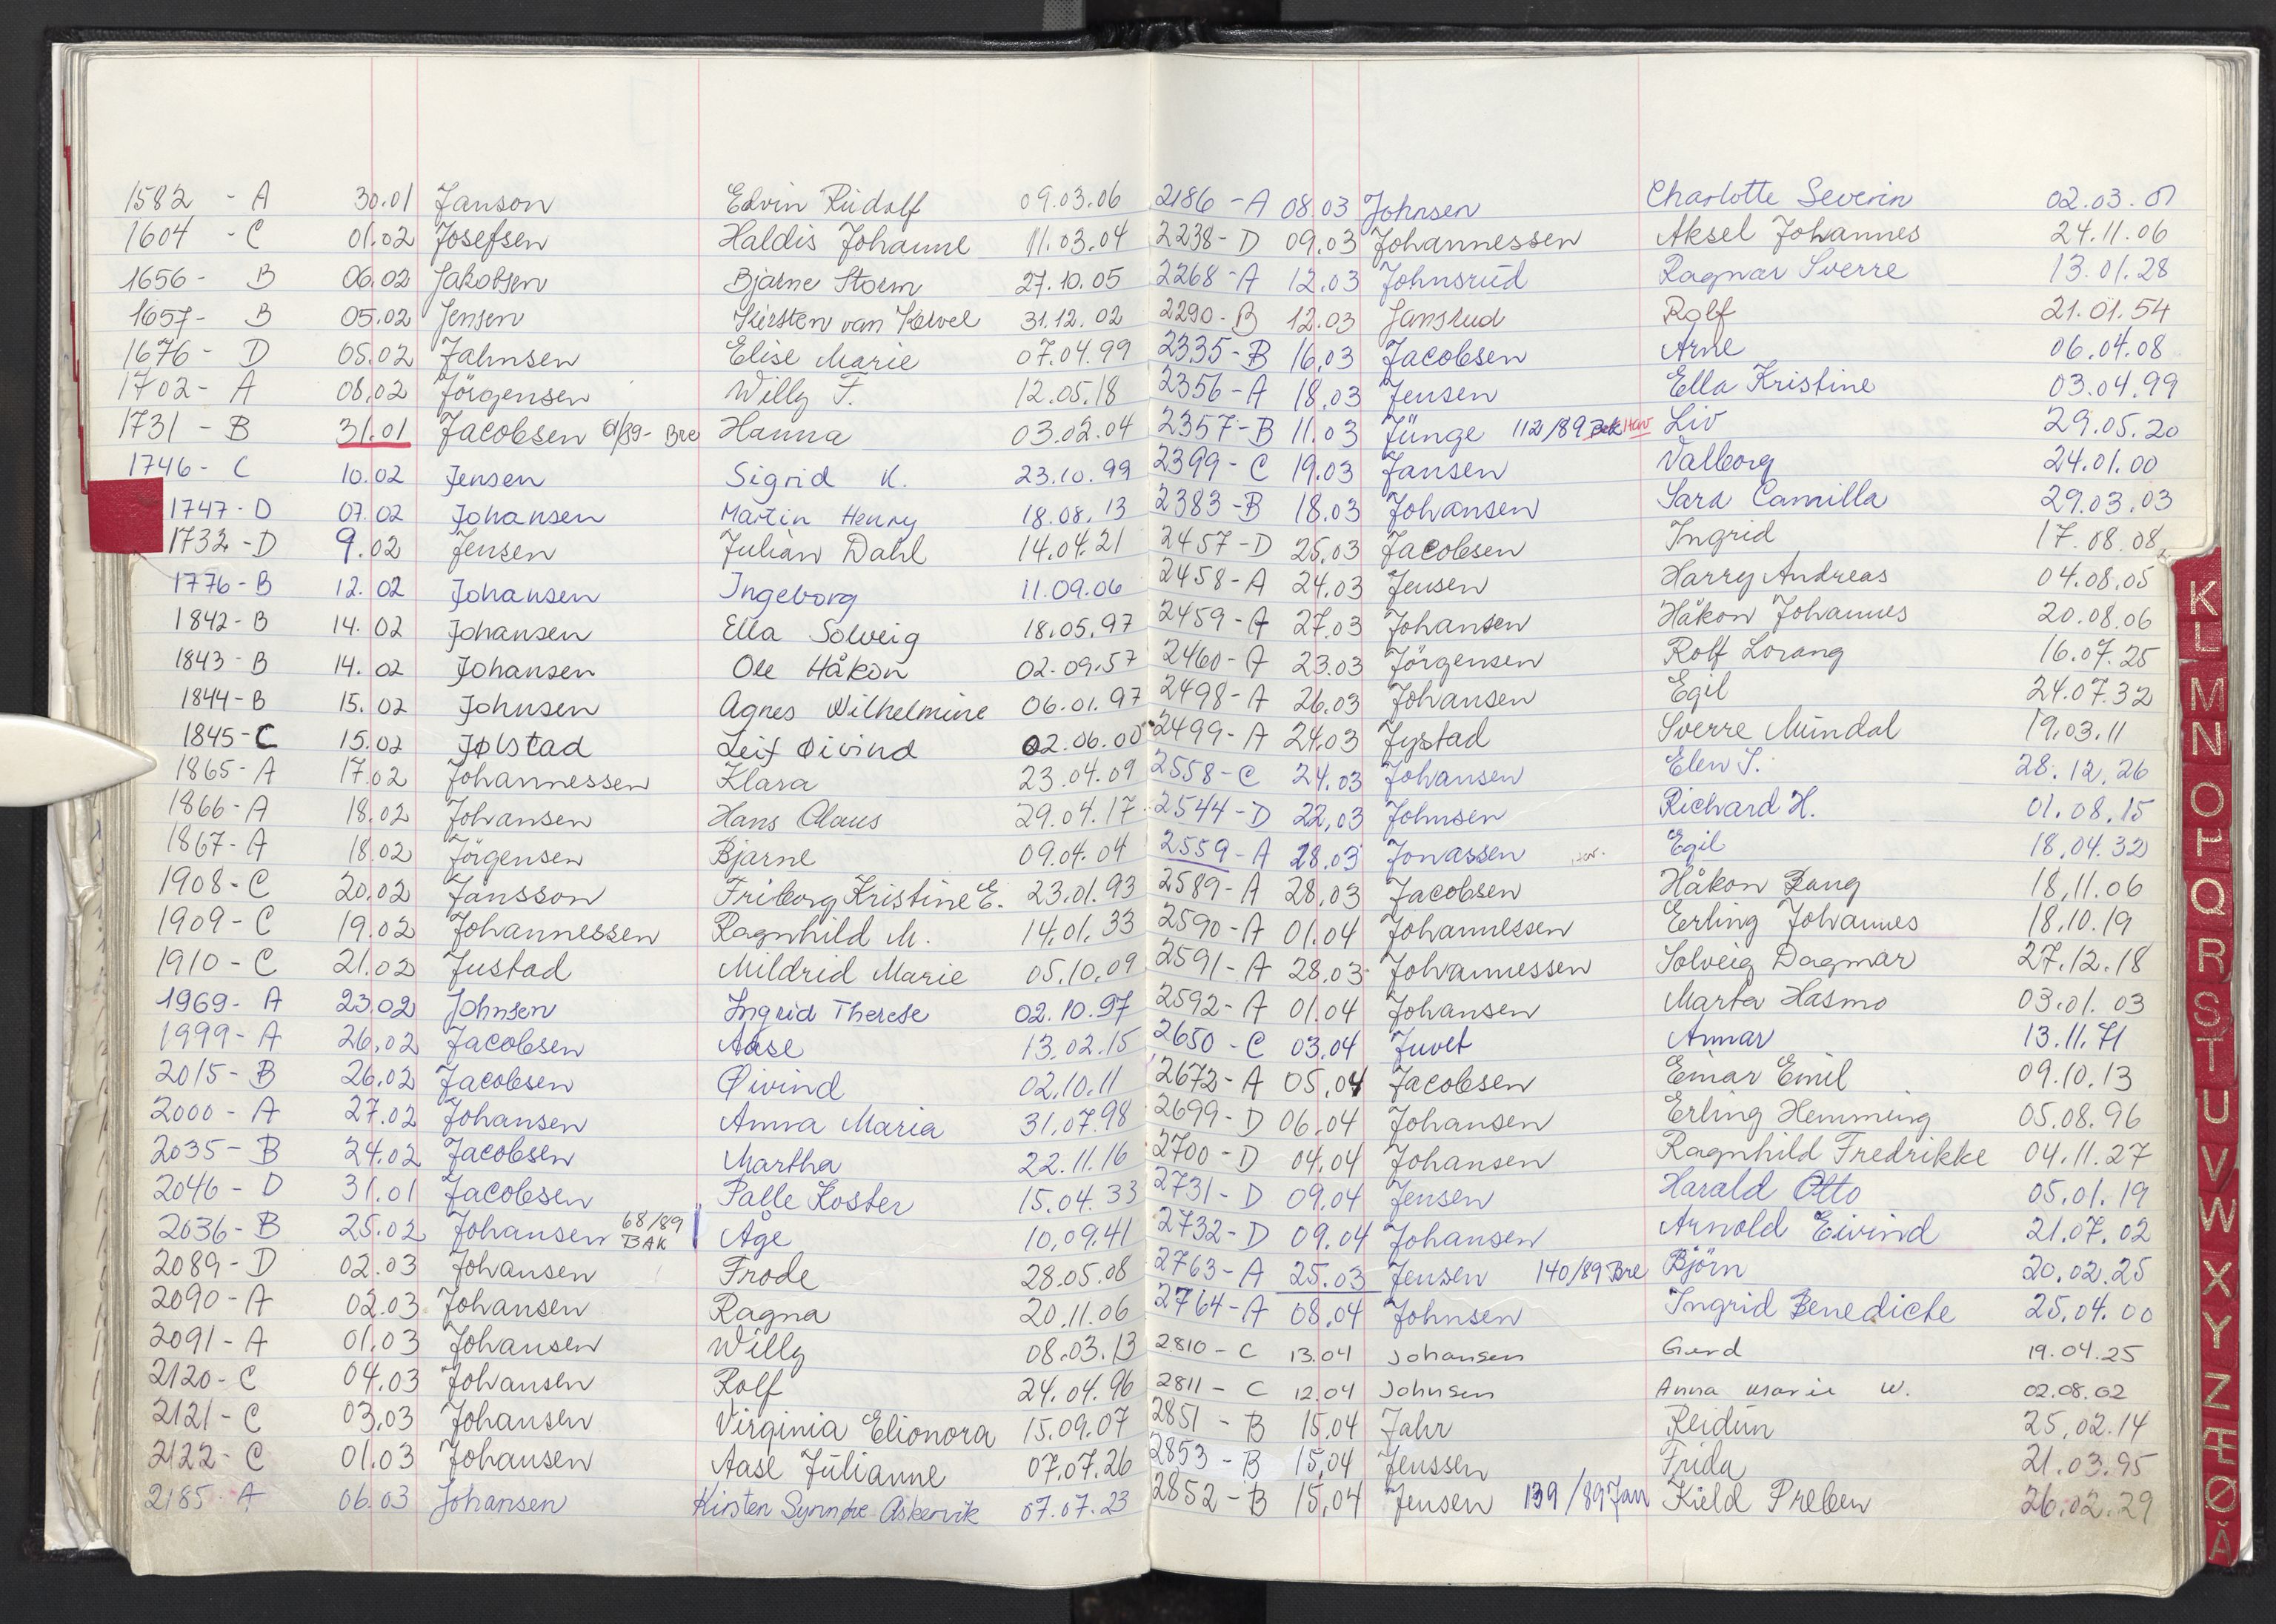 1582 - A 30.01 Janson Edvin Rudolf 09.03.06
1604 - C 01.02 Josefsen Haldis Johanne 11.03.04
1656 - B 06.02 Jakobsen Bjarne Storm 27.10.05
1657 - B 05.02 Jensen Kirsten van Kervel 31.12.02
1676 - D 05.02 Jahnsen Elise Marie 07.04.99
1702 - A 08.02 Jörgensen Willy F. 12.05.18
1731 - B 31.01 Jacobsen 61/89 - Bre Hanna 03.02.04
1746 - C 10.02 Jensen Sigrid K. 23.10.99
1747 - D 07.02 Johansen Martin Henry 18.08.13
1732 - D 9.02 Jensen Julian Dahl 14.04.21
1776 - B 12.02 Johansen Ingeborg 11.09.06
1842 - B 14.02 Johansen Ella Solveig 18.05.97
1843 - B 14.02 Johansen Ole Håkon 02.09.57
1844 - B 15.02 Johnsen Agnes Wilhelmine 06.01.97
1845 - C 15.02 Jølstad Leif Øivind 02.06.00
1865 - A 17.02 Johannessen Klara 23.04.09
1866 - A 18.02 Johansen Hans Olaus 29.04.17
1867 - A 18.02 Jörgensen Bjarne 09.04.04
1908 - C 20.02 Jansson Friborg Kristine E. 23.01.93
1909 - C 19.02 Johannessen Ragnhild M. 14.01.33
1910 - C 21.02 Justad Mildrid Marie 05.10.09
1969 - A 23.02 Johnsen Ingrid Therese 02.10.97
1999 - A 26.02 Jacobsen Aase 13.02.15
2015 - B 26.02 Jacobsen Øivind 02.10.11
2000 - A 27.02 Johansen Anna Maria 31.07.98
2035 - B 24.02 Jacobsen Martha 22.11.16
2046 - D 31.01 Jacobsen Palle Koster 15.04.33
2036 - B 25.02 Johansen 68/89 BAK Åge 10.09.41
2089 - D 02.03 Johansen Frode 28.05.08
2090 - A 02.03 Johansen Ragna 20.11.06
2091 - A 01.03 Johansen Willy 08.03.13
2120 - C 04.03 Johansen Rolf 24.04.96
2121 - C 03.03 Johansen Virginia Elionora 15.09.07
2122 - C 01.03 Johansen Aase Julianne 07.07.26
2185 - A 06.03 Johansen Kirsten Synnøve Askervik 07.07.23
2186 - A 08.03 Johnsen Charlotte Severin 02.03.01
2238 - D 09.03 Johannessen Aksel Johannes 24.11.06
2268 - A 12.03 Johnsrud Ragnar Sverre 13.01.28
2290 - B 12.03 Jansrud Rolf 21.01.54
2335 - B 16.03 Jacobsen Arne 06.04.08
2356 - A 18.03 Jensen Ella Kristine 03.04.99
2357 - B 11.03 Junge 112/89 Bak Hav Liv 29.05.20
2399 - C 19.03 Jansen Valborg 24.01.00
2383 - B 18.03 Johansen Sara Camilla 29.03.03
2457 - D 25.03 Jacobsen Ingrid 17.08.08
2458 - A 24.03 Jensen Harry Andreas 04.08.05
2459 - A 27.03 Johansen Håkon Johannes 20.08.06
2460 - A 23.03 Jörgensen Rolf Lorang 16.07.25
2498 - A 26.03 Johansen Egil 24.07.32
2499 - A 24.03 Jystad Sverre Mundal 19.03.11
2558 - C 24.03 Johansen Elen S. 28.12.26
2544 - D 22.03 Johnsen Richard H. 01.08.15
2559 - A 28.03 Jonassen Egil 18.04.32
2589 - A 28.03 Jacobsen Håkon Bang 18.11.06
2590 - A 01.04 Johannessen Erling Johannes 18.10.19
2591 - A 28.03 Johannessen Solveig Dagmar 27.12.18
2592 - A 01.04 Johansen Marta Hasmo 03.01.03
2650 - C 03.04 Juvet Annar 13.11.71
2672 - A 05.04 Jacobsen Einar Emil 09.10.13
2699 - D 06.04 Johansen Erling Hemming 05.08.96
2700 - D 04.04 Johansen Ragnhild Fredrikke 04.11.27
2731 - D 09.04 Jensen Harald Otto 05.01.19
2732 - D 09.04 Johansen Arnold Eivind 21.07.02
2763 - A 25.03 Jensen 140/89 Bre Björn 20.02.25
2764 - A 08.04 Johnsen Ingrid Benedicte 25.04.00
2810 - C 13.04 Johansen Gerd 19.04.25
2811 - C 12.04 Johnsen Anna Marie W. 02.08.02
2851 - B 15.04 Jahr Reidun 25.02.14
2853 - B 15.04 Jenssen Frida 21.03.95
2852 - B 15.04 Jensen 139/89 Jan Kield Preben 26.02.29
K
L
M
N
O
P
Q
R
S
T
U
V
W
X
Y
Z
Æ
Ø
Å